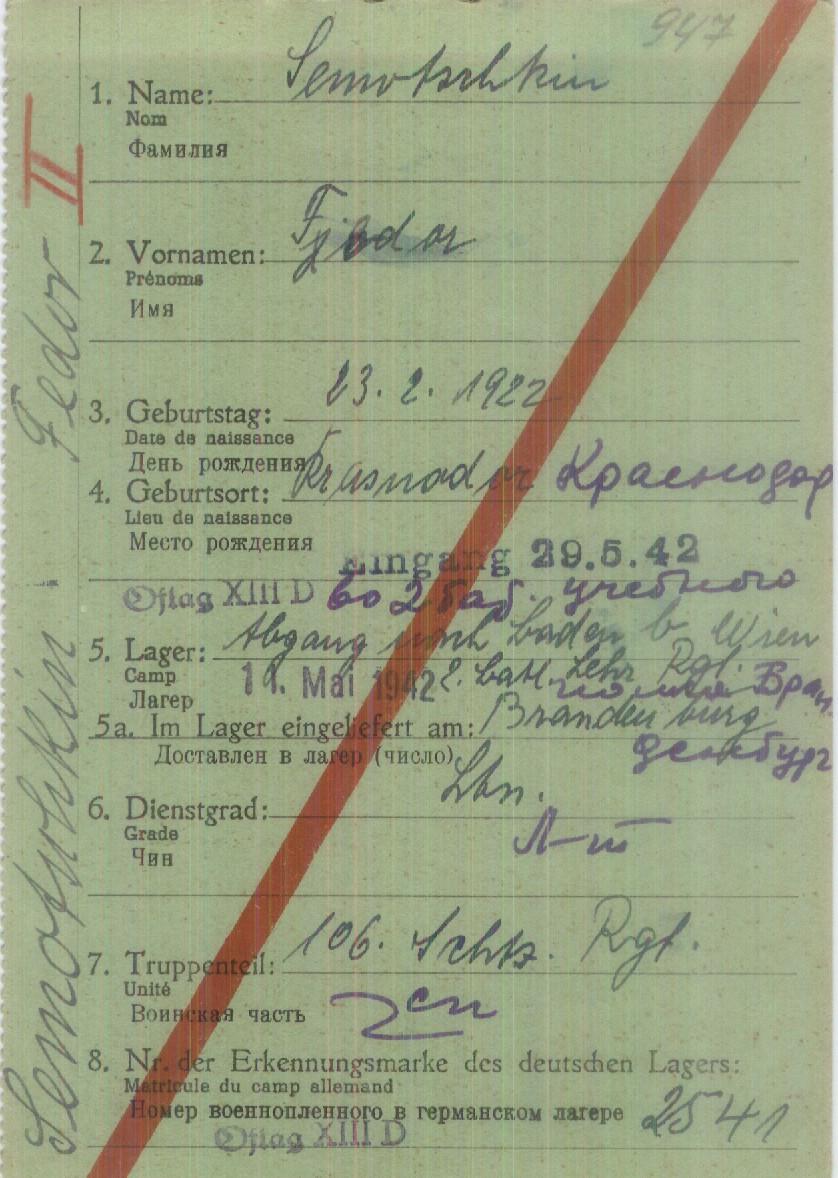 947
1. Name: Semotschkin
Nom
Фамилия
II
2. Vornamen: Fjodor
Prénoms
Имя
3. Geburtstag: 23. 2. 1922
Date de naissance
День рождения
4. Geburtsort: Krasnodor Краснодор
Lieu de naissance
Место рождения
Eingang 29.5.42
Oflag XIII D во 2 бат. учебного
5. Lager: Abgang nach Baden b. Wien
Camp 11. Mai 1942 2. Batl. Lehr Rgt.
Лагерь полка Бран
5a. Im Lager eingeliefert am: Brandenburg
Доставлен в лагерь (число) денбург
6. Dienstgrad: Ltn.
Grade
Чин Л-т
7. Truppenteil: 106. Schtz. Rgt.
Unité
Воинская часть сп
8. Nr. der Erkennungsmarke des deutschen Lagers:
Matricule du camp allemand
Номер военнопленного в германском лагере 2541
Oflag XIII D
Semotschkin Fedor